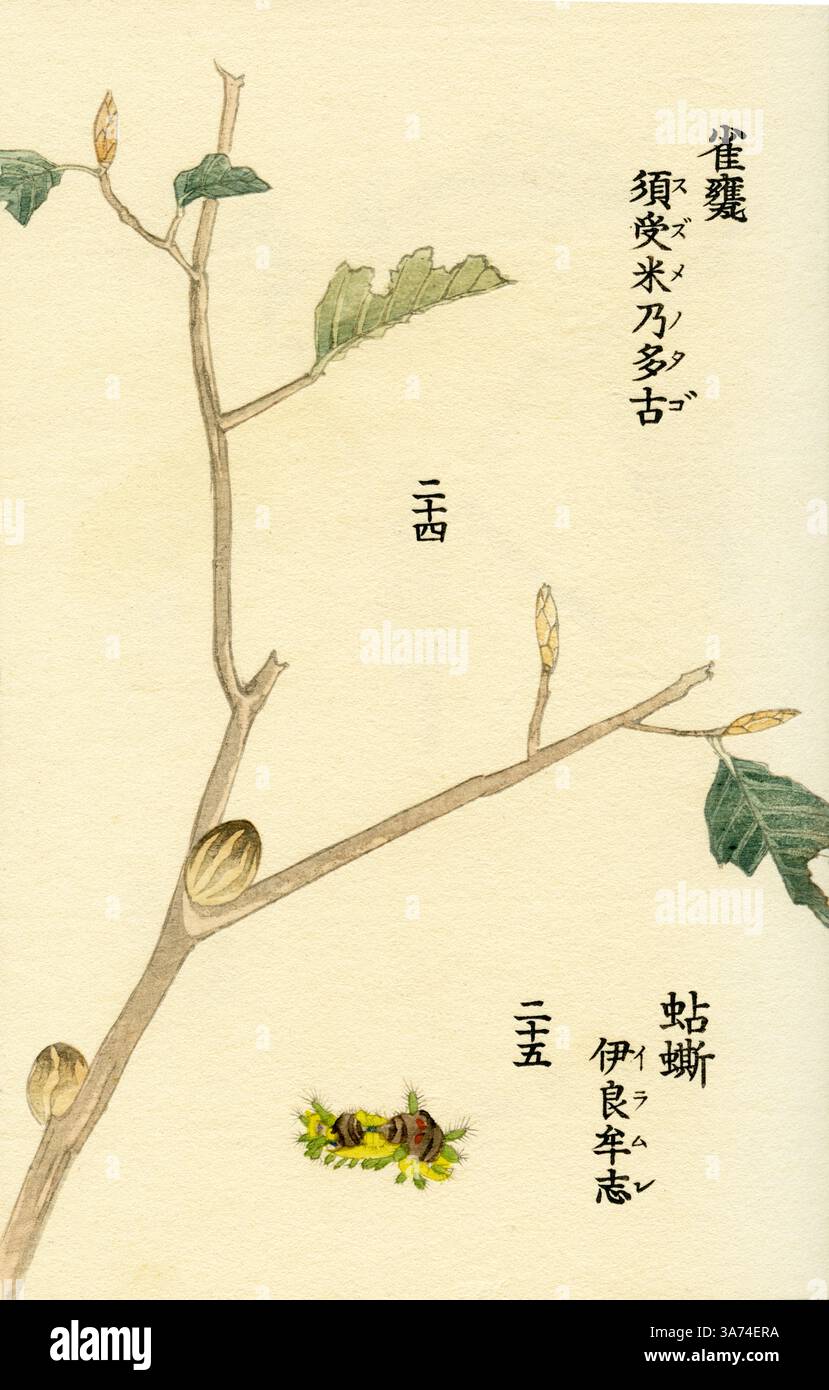 雀甕
須受米乃多古
スズメノタゴ
二十四
蛅蟖
伊良牟志
イラムシ
二十五
alamy
a
Image ID: 3A74ERA
www.alamy.com